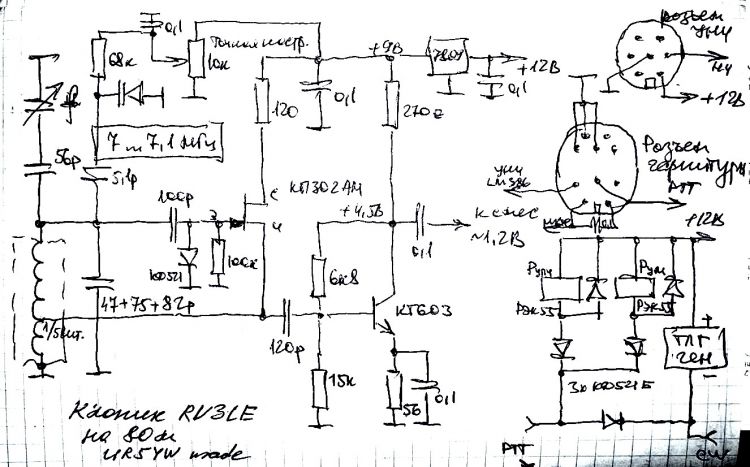 0,1
68к
10к
Точная настр.
+9В
7809
+12В
0,1
0,1
120
270
56р
7 ... 7,1 мгц
5,1р
100р
КП302АМ
с
и
з
КД521
100к
+4,5В
к смес
~1,2В
0,1
6к8
47+75+82р
1/5 вит.
120р
КТ603
15к
56
0,1
разъем
УНЧ
НЧ
+12В
Разъем
гарнитуры
УНЧ
LM386
РТТ
+12В
РЭК55
РЭК55
3х КД521Б
ТЛГ
ген
+
−
РТТ
CW
Клопик RV3LE
на 80м
UR5YW made